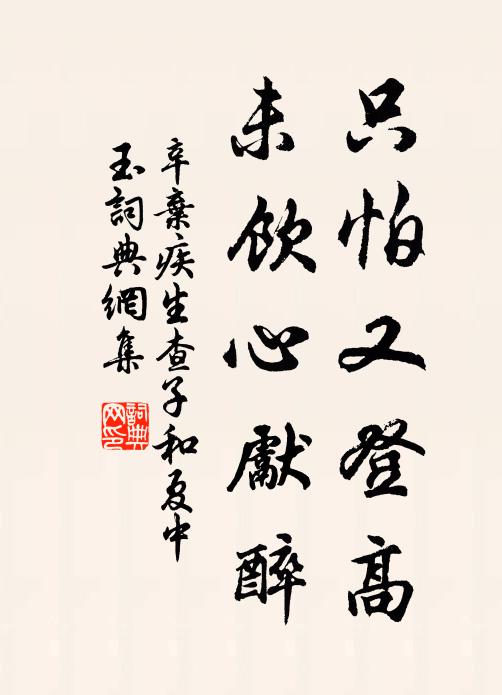 只怕又登高
未飲心獻醉
辛棄疾生查子和夏中
玉詞典網集
詞典
网印